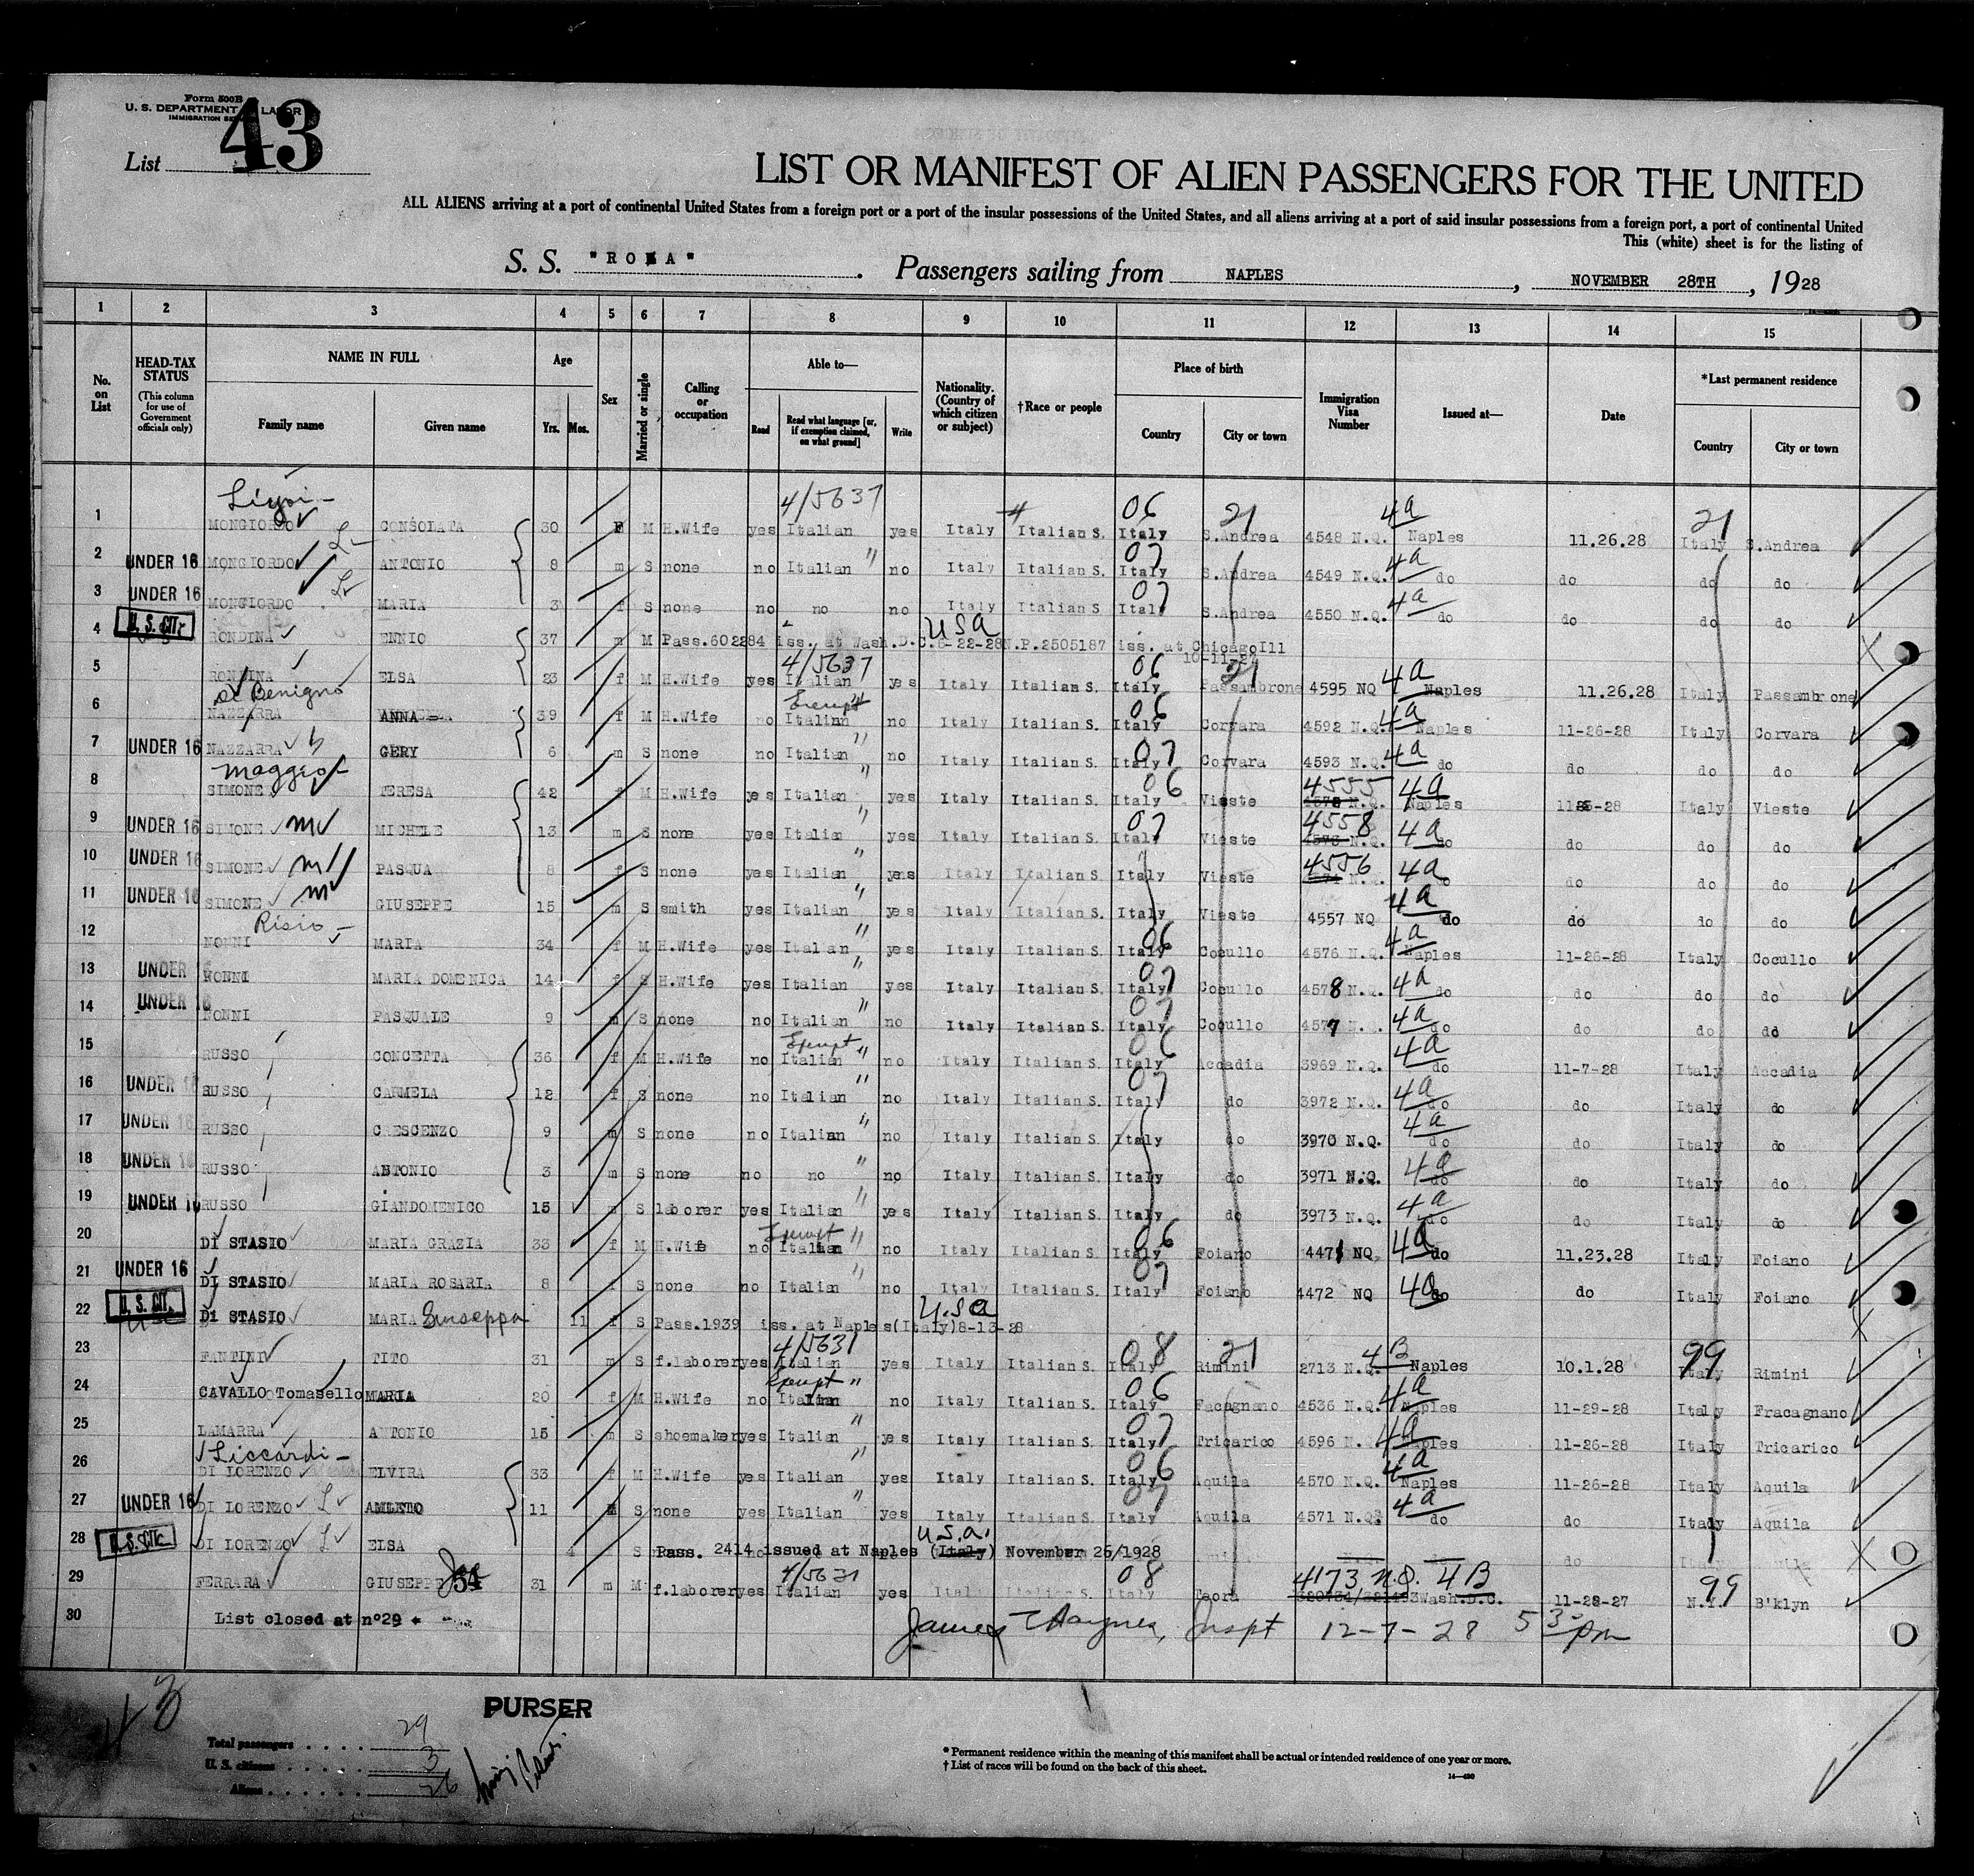 Form 500B
U. S. DEPARTMENT LABOR
IMMIGRATION
List 43
LIST OR MANIFEST OF ALIEN PASSENGERS FOR THE UNITED
ALL ALIENS arriving at a port of continental United States from a foreign port or a port of the insular possessions of the United States, and all aliens arriving at a port of said insular possessions from a foreign port, a port of continental United
This (white) sheet is for the listing of
S. S. "ROMA" . Passengers sailing from NAPLES , NOVEMBER 28TH , 1928
1 2 3 4 5 6 7 8 9 10 11 12 13 14 15
No. on List HEAD-TAX STATUS (This column for use of Government officials only) NAME IN FULL Family name Given name Age Yrs. Mos. Sex Married or single Calling or occupation Able to— Read Read what language [or, if exemption claimed, on what ground] Write Nationality. (Country of which citizen or subject) †Race or people Place of birth Country City or town Immigration Visa Number Issued at— Date *Last permanent residence Country City or town
4/5637 06 21 4a 21
1 MONGIORDO CONSOLATA 30 F M H.Wife yes Italian yes Italy Italian S. Italy S.Andrea 4548 N.Q. Naples 11.26.28 Italy S.Andrea
2 UNDER 16 MONGIORDO ANTONIO 8 m S none no Italian " no Italy Italian S. 07 Italy S.Andrea 4549 N.Q. 4a do do do do
3 UNDER 16 MONGIORDO MARIA 3 f S none no no no Italy Italian S. 07 Italy S.Andrea 4550 N.Q. 4a do do do do
4 U. S. CIT. RONDINA ENNIO 37 m M Pass.602284 iss. at Wash.D.C.6-22-28 N.P.2505187 iss. at Chicago Ill USA
5 RONDINA ELSA 23 f M H.Wife yes 4/5637 Italian yes Italy Italian S. 06 Italy 21 Passambrone 4595 NQ 4a Naples 11.26.28 Italy Passambrone
di Benigno
6 NAZZARRA ANNA 39 f M H.Wife no Exempt Italian no Italy Italian S. 06 Italy Corvara 4592 N.Q. 4a Naples 11-26-28 Italy Corvara
7 UNDER 16 NAZZARRA GERY 6 m S none no Italian " no Italy Italian S. 07 Italy Corvara 4593 N.Q. 4a do do do do
Maggio
8 SIMONE TERESA 42 f M H.Wife yes Italian " yes Italy Italian S. 06 Italy Vieste 4555 N.Q. 4a Naples Italy Vieste
9 UNDER 16 SIMONE M MICHELE 13 m S none yes Italian " yes Italy Italian S. 07 Italy Vieste 4558 N.Q. 4a do do do do
10 UNDER 16 SIMONE M PASQUA 8 f S none yes Italian " yes Italy Italian S. Italy Vieste 4556 N.Q. 4a do do do do
11 UNDER 16 SIMONE M GIUSEPPE 15 m S smith yes Italian " yes Italy Italian S. Italy Vieste 4557 NQ 4a do do do do
Risio
12 NONNI MARIA 34 f M H.Wife yes Italian " yes Italy Italian S. 06 Italy Cocullo 4576 N.Q. 4a Naples 11-26-28 Italy Cocullo
13 UNDER 16 NONNI MARIA DOMENICA 14 f S H.Wife yes Italian " yes Italy Italian S. 07 Italy Cocullo 4578 N.Q. 4a do do do do
14 UNDER 16 NONNI PASQUALE 9 m S none no Italian " no Italy Italian S. 07 Italy Cocullo 4577 4a do do do do
15 RUSSO CONCETTA 36 f M H.Wife no Exempt Italian " no Italy Italian S. 06 Italy Accadia 3969 N.Q. 4a do 11-7-28 Italy Accadia
16 UNDER 16 RUSSO CARMELA 12 f S none no Italian " no Italy Italian S. 07 Italy do 3972 N.Q. 4a do do Italy do
17 UNDER 16 RUSSO CRESCENZO 9 m S none no Italian " no Italy Italian S. Italy do 3970 N.Q. 4a do do Italy do
18 UNDER 16 RUSSO ANTONIO 3 m S none no no " no Italy Italian S. Italy do 3971 N.Q. 4a do do Italy do
19 UNDER 16 RUSSO GIANDOMENICO 15 m S laborer yes Italian " yes Italy Italian S. Italy do 3973 N.Q. 4a do do Italy do
20 DI STASIO MARIA GRAZIA 33 f M H.Wife no Exempt Italian " no Italy Italian S. 06 Italy Foiano 4471 NQ 4a do 11.23.28 Italy Foiano
21 UNDER 16 DI STASIO MARIA ROSARIA 8 f S none no Italian " no Italy Italian S. 07 Italy Foiano 4472 NQ 4a do do Italy Foiano
22 U. S. CIT. DI STASIO MARIA Giuseppa 11 f S Pass.1939 iss. at Naples(Italy)8-13-28 U.S.A
23 FANTINI TITO 31 m S f.laborer yes 4/5631 Italian yes Italy Italian S. 08 Italy 21 Rimini 2713 N.Q. 4B Naples 10.1.28 99 Italy Rimini
24 CAVALLO Tomasello MARIA 20 f M H.Wife no Exempt " Italian no Italy Italian S. 06 Italy Facagnano 4536 N.Q. 4a Naples 11-29-28 Italy Fracagnano
25 LAMARRA ANTONIO 15 m S shoemaker yes Italian " yes Italy Italian S. 07 Italy Tricarico 4596 N. 4a Naples 11-26-28 Italy Tricarico
Liccardi
26 DI LORENZO ELVIRA 33 f M H.Wife yes Italian " yes Italy Italian S. 06 Italy Aquila 4570 N.Q. 4a Naples 11-26-28 Italy Aquila
27 UNDER 16 DI LORENZO L AMLETO 11 m S none yes Italian " yes Italy Italian S. 07 Italy Aquila 4571 N.Q. 4a do do Italy Aquila
28 U.S. CIT. DI LORENZO L ELSA 4 S Pass. 2414 issued at Naples (Italy) November 26/1928 U.S.A.
29 FERRARA GIUSEPPE 31 m M f.laborer yes 4/5631 Italian yes Italy Italian S. 08 Italy Teora 4173 N.Q. 4B Wash.D.C. 11-28-27 99 N.Y. B'klyn
30 List closed at n°29 James Haynes, Inspt 12-7-28 5 30 pm
43
PURSER
Total passengers . . . . 29
U. S. citizens . . . . . 3
Aliens . . . . . . 26
* Permanent residence within the meaning of this manifest shall be actual or intended residence of one year or more.
† List of races will be found on the back of this sheet.